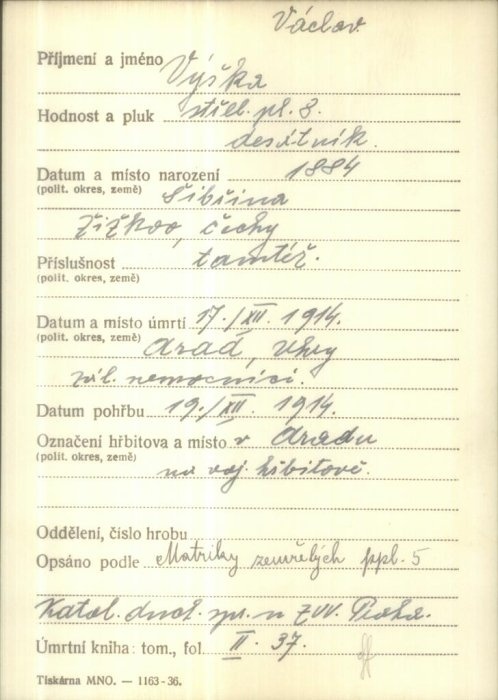 Václav
Příjmení a jméno Výška
Hodnost a pluk střel. pl. 8.
desátník.
Datum a místo narození 1884
(polit. okres, země) Sibřina
Žižkov, Čechy
Příslušnost tamtéž.
(polit. okres, země)
Datum a místo úmrtí 17./XII. 1914.
(polit. okres, země) Arad, Uhry
zál. nemocnici.
Datum pohřbu 19./XII. 1914.
Označení hřbitova a místo v Aradu
(polit. okres, země)
na voj. hřbitově.
Oddělení, číslo hrobu
Opsáno podle Matriky zemřelých ppl. 5
Katol. duch. spr. u ZVV. Praha.
Úmrtní kniha: tom., fol. II. 37.
Tiskárna MNO. — 1163-36.